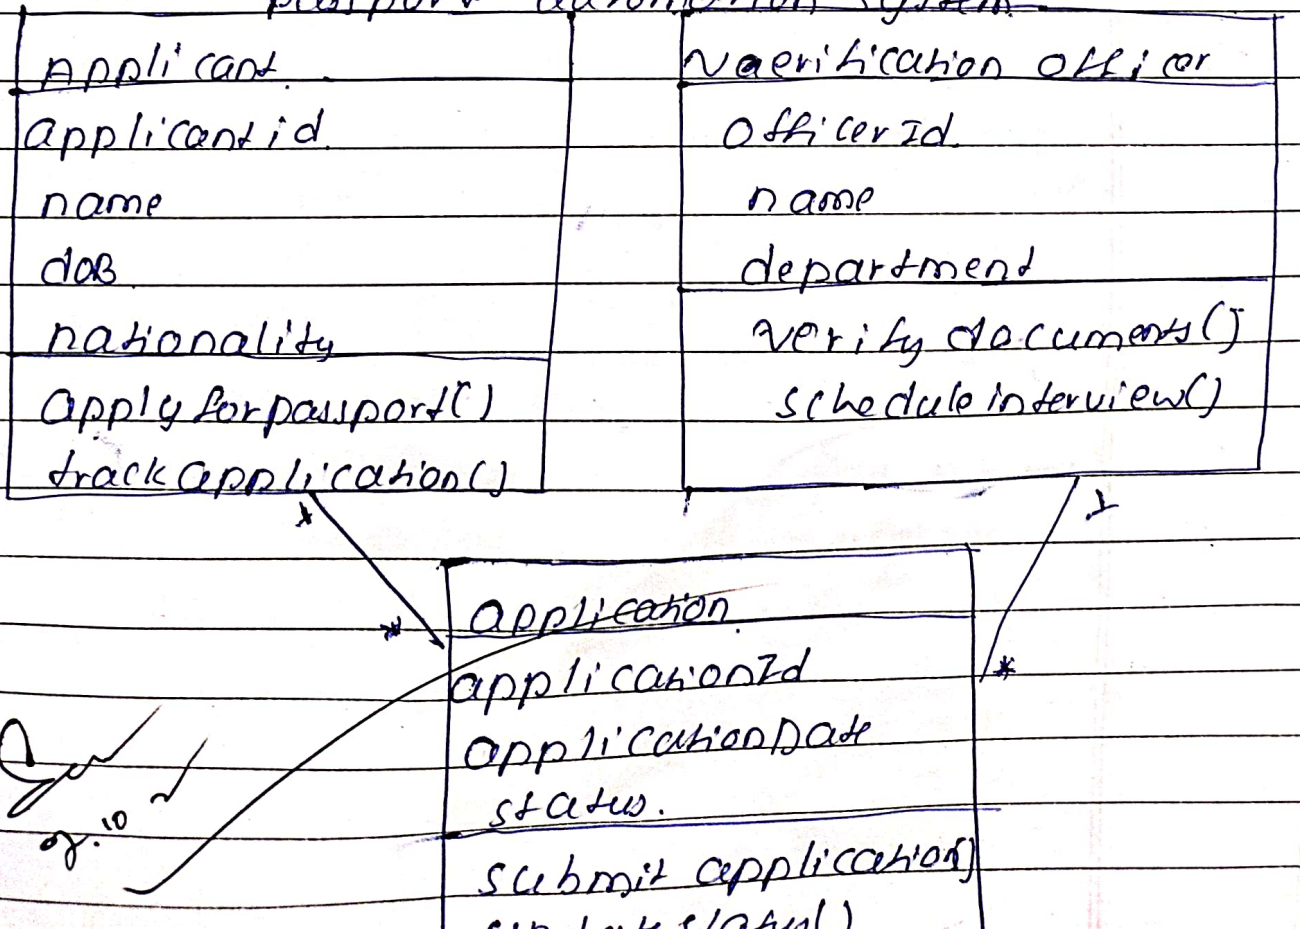 passport automation system
Applicant
applicantid
name
doB
nationality
apply forpassport()
trackapplication()
Vaerification officer
OfficerId
name
department
verify documents()
scheduleinterview()
1
*
1
*
application
applicationId
applicationDate
status.
submit application()